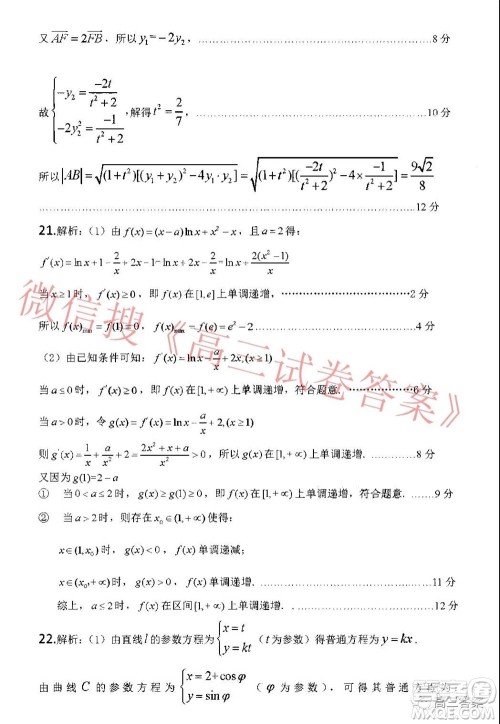 又 $\overrightarrow{AF}=2\overrightarrow{FB}$，所以 $y_1=-2y_2$，……………………………………8 分
故 $\begin{cases}-y_2=\dfrac{-2t}{t^2+2}\\-2y_2^2=\dfrac{-1}{t^2+2}\end{cases}$，解得 $t^2=\dfrac{2}{7}$，……………………………………10 分
所以 $|AB|=\sqrt{(1+t^2)[(y_1+y_2)^2-4y_1\cdot y_2]}=\sqrt{(1+t^2)[(\dfrac{-2t}{t^2+2})^2-4\times\dfrac{-1}{t^2+2}]}=\dfrac{9\sqrt{2}}{8}$
……………………………………12 分
21.解析：（1）由 $f(x)=(x-a)\ln x+x^2-x$，且 $a=2$ 得：
$f'(x)=\ln x+1-\dfrac{2}{x}+2x-1=\ln x+\dfrac{2(x^2-1)}{x}$
当 $x\geq1$ 时，$f'(x)\geq0$，即 $f(x)$ 在 $[1,e]$ 上单调递增，……………………………2 分
所以 $f(x)_{\min}=f(1)=0$，$f(x)_{\max}=f(e)=e^2-2$……………………………4 分
（2）由已知条件可知：$f'(x)=\ln x-\dfrac{a}{x}+2x,(x\geq1)$
当 $a\leq0$ 时，$f'(x)\geq0$，$f(x)$ 在 $[1,+\infty)$ 上单调递增，符合题意．……………6 分
当 $a>0$ 时，令 $g(x)=f'(x)=\ln x-\dfrac{a}{x}+2x,(x\geq1)$
则 $g'(x)=\dfrac{1}{x}+\dfrac{a}{x^2}+2=\dfrac{2x^2+x+a}{x^2}>0$，$g(x)$ 在 $[1,+\infty)$ 上单调递增．……………8 分
又因为 $g(1)=2-a$
① 当 $0<a\leq2$ 时，$g(x)\geq g(1)\geq0$，$f(x)$ 在 $[1,+\infty)$ 上单调递增，符合题意．……9 分
② 当 $a>2$ 时，则存在 $x_0\in(1,+\infty)$ 使得：
$x\in(1,x_0)$ 时，$g(x)<0$，$f(x)$ 单调递减；
$x\in(x_0,+\infty)$ 时，$g(x)>0$，$f(x)$ 单调递增．……………………………11 分
综上，$a\leq2$ 时，$f(x)$ 在区间 $[1,+\infty)$ 上单调递增．……………………………12 分
22.解析：（1）由直线 $l$ 的参数方程为 $\begin{cases}x=t\\y=kt\end{cases}$（$t$ 为参数）得普通方程为 $y=kx$．
由曲线 $C$ 的参数方程为 $\begin{cases}x=2+\cos\varphi\\y=\sin\varphi\end{cases}$（$\varphi$ 为参数），可得其普通方程为
微信搜《高三试卷答案》
高三答案